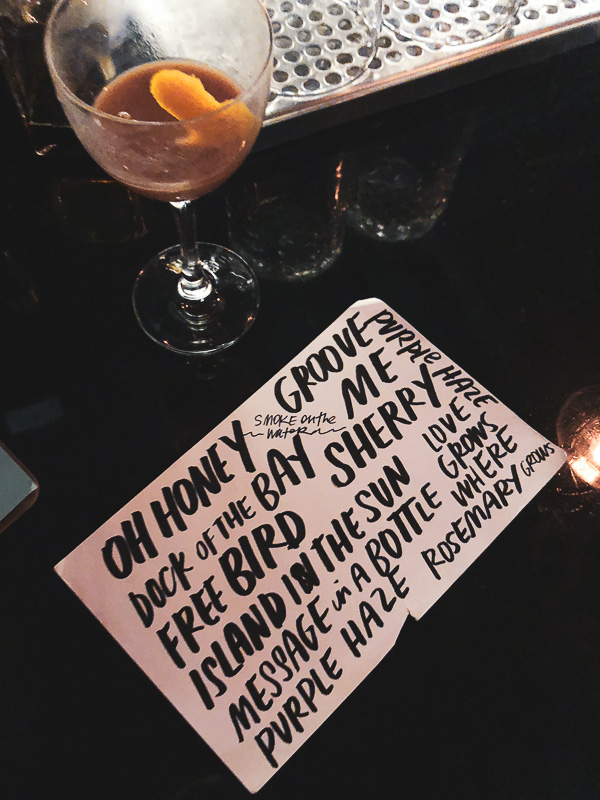 OH HONEY
SMOKE on the
water
DOCK OF THE BAY
FREE BIRD
ISLAND IN THE SUN
MESSAGE in A BOTTLE
PURPLE HAZE
GROOVE ME
SHERRY
PURPLE HAZE
LOVE
GROWS
WHERE
ROSEMARY GROWS